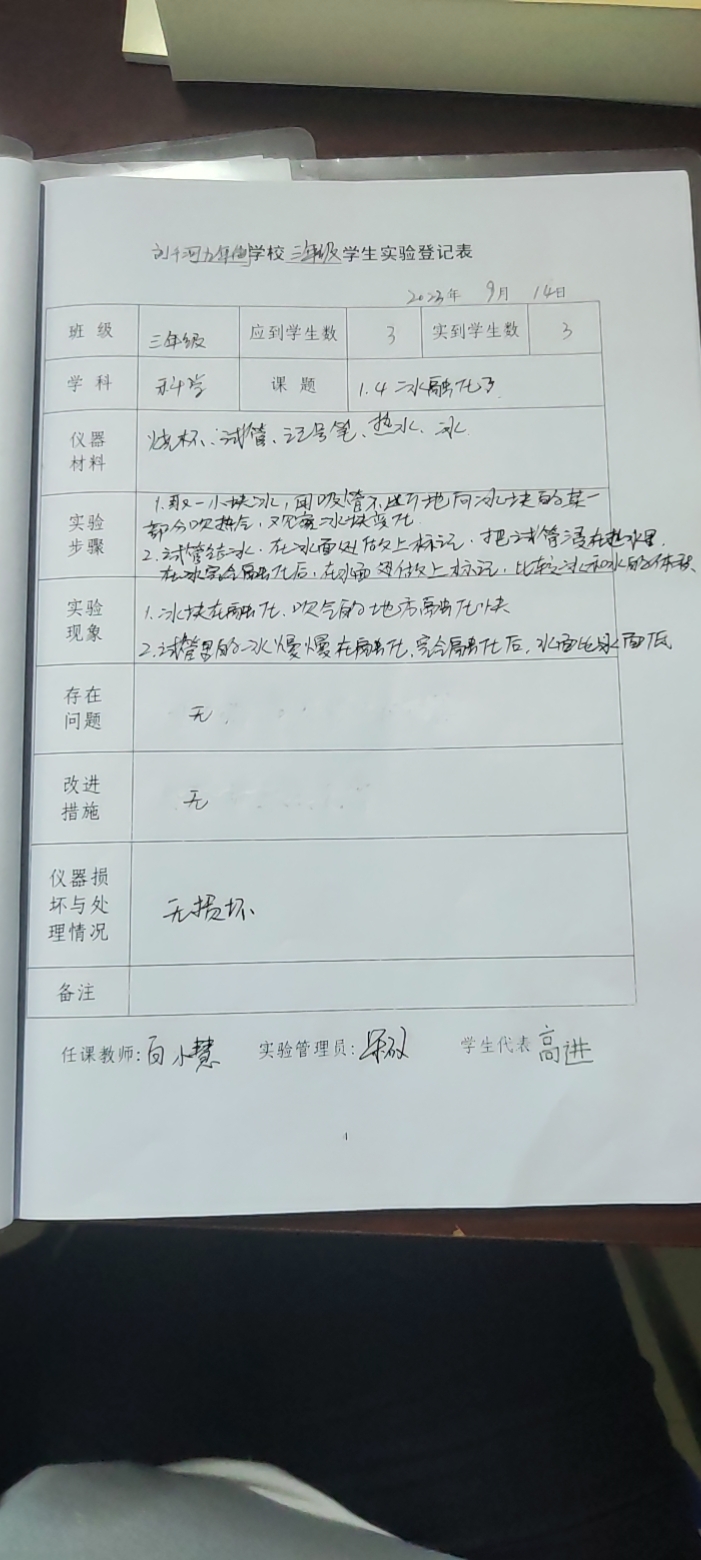 刘千河九年制学校三年级学生实验登记表
2023年 9月 14日
班 级 三年级 应到学生数 3 实到学生数 3
学 科 科学 课 题 1.4 冰融化了
仪器材料 烧杯、试管、记号笔、热水、冰
实验步骤
1.取一小块冰，用吸管不断地向冰块的某一
部分吹热气，观察冰块变化.
2.试管结冰.在冰面处做上标记.把试管浸在热水里.
在冰完全融化后，在水面处做上标记，比较冰和水的体积
实验现象
1.冰块在融化.吹气的地方融化快
2.试管里的冰慢慢在融化.完全融化后，水面比冰面低
存在问题 无.
改进措施 无
仪器损坏与处理情况 无损坏
备注
任课教师:白小慧 实验管理员: 学生代表 高进
4